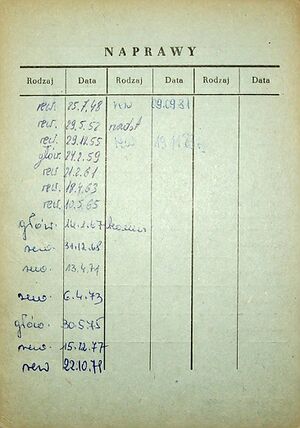 NAPRAWY
Rodzaj Data Rodzaj Data Rodzaj Data
rew. 25.7.48 rew 29.09.81
rew. 29.5.52
rew. 29.12.55 rew
głów. 24.2.59
rew. 21.2.61
rew. 19.4.63
rew. 10.5.65
głów. 14.2.67
rew. 31.12.68
rew. 13.4.71
rew. 6.4.73
głów. 30.5.75
rew. 15.12.77
rew 22.10.79